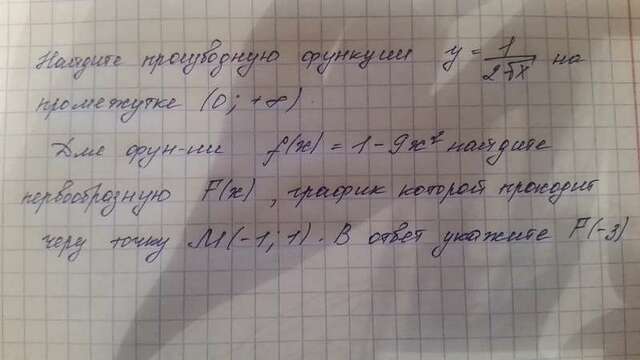 Найдите производную функции y = 1/(2√x) на
промежутке (0; +∞).
Для фун-ии f(x) = 1 - 9x² найдите
первообразную F(x), график которой проходит
через точку M(-1; 1). В ответ укажите F(-3)